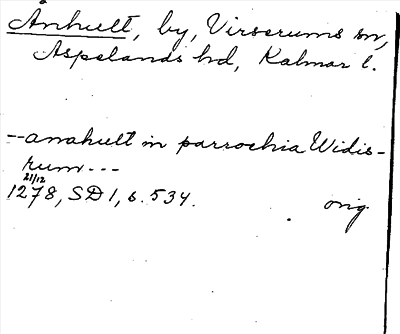 Ånhult, by, Virserums sn,
Aspelands hd, Kalmar l.
--anahult in parrochia Widis-
rum---
21/12
1278, SD1, s. 534. orig